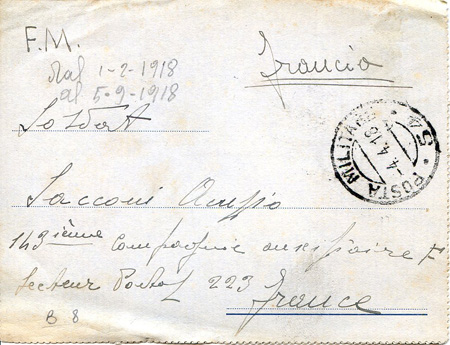 F.M.
Francia
dal 1-2-1918
al 5-9-1918
Soldat
POSTA MILITARE • 54 •
-4.4.18
Sacconi
143ième Compagnie auxiliaire F
Secteur Postal 223 France
B 8